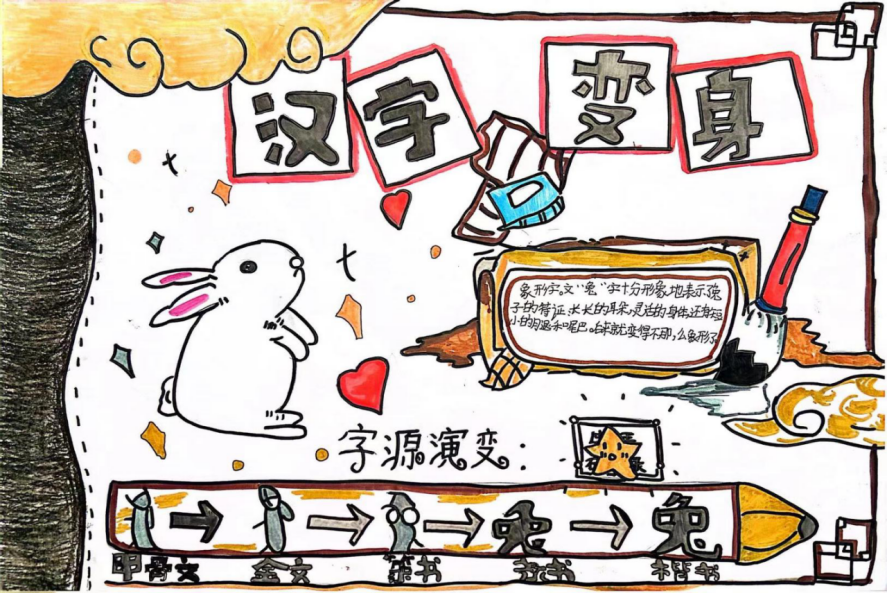 汉字变身
象形字。文“兔”字十分形象地表示兔
子的特征:长长的耳朵,灵活的身体还有短
小的腿和尾巴。后来就变得不那么象形了
字源演变:
兔
甲骨文 金文 篆书 隶书 楷书